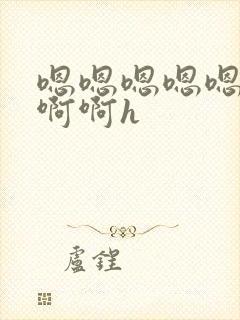 嗯嗯嗯嗯嗯
啊啊h
盧鋥